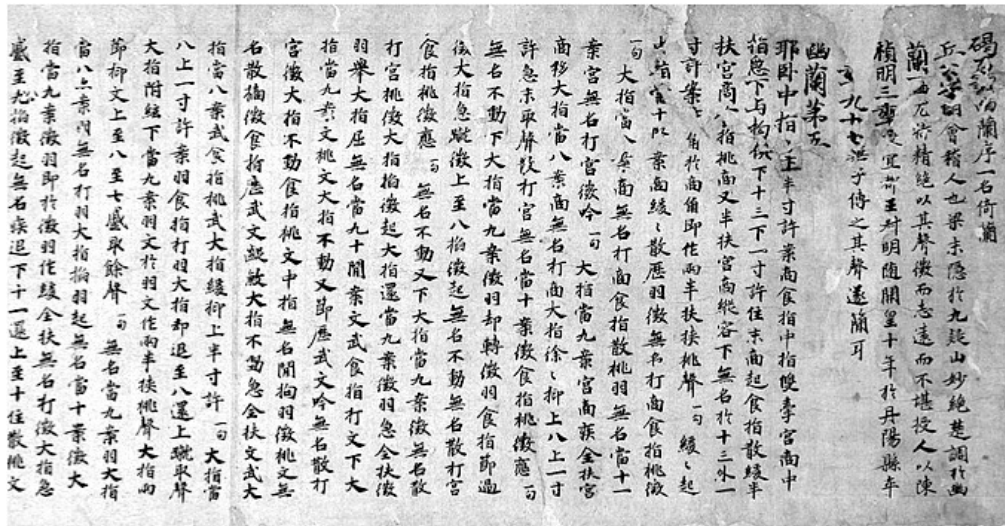 碣石調幽蘭序一名倚蘭
丘公字明會稽人也梁末隱於九疑山妙絕楚調於幽
蘭一曲尤特精絕以其聲微而志遠而不堪授人以陳
禎明三年授宜都王叔明隨開皇十年於丹陽縣卒
年九十七無子傳之其聲遂蕳耳
幽蘭第五
耶臥中指十上半寸許案商食指中指雙牽宮商中
指急下与拘俱下十三下一寸許住末商起食指散緩半
扶宮商食指挑商又半扶宮商縱容下無名於十三外一
寸許案商角於商角即作兩半扶挾挑聲一句 緩〻起
指當十案商緩〻散歷羽徵無名打商食指挑徵
一句 大指當八案商無名打商食指散挑羽無名當十一
案宮無名打宮徵吟一句 大指當九案宮商疾全扶宮
商移大指當八案商無名打商大指徐〻抑上八上一寸
許急末取聲散打宮無名當十案徵食指挑徵應一句
無名不動下大指當九案徵羽却轉徵羽食指節過
徐大指急蹴徵上至八掐徵起無名不動無名散打宮
食指挑徵應一句 無名不動又下大指當九案徵無名散
打宮挑徵大指掐徵起大指還當九案徵羽急全扶徵
羽舉大指屈無名當九十間案文武食指打文下大
指當九案文挑文大指不動又節歷武文吟無名散打
宮徵大指不動食指挑文中指無名間拘羽徵挑文無
名散摘徵食指歷武文大指不動急全扶文武大
指當八案武食指挑武大指緩抑上半寸許一句 大指當
八上一寸許案羽食指打羽大指却退至八還上蹴取聲
大指附絃下當九案羽文於羽文作兩半挾挑聲大指兩
節抑文上至八至七蹙取餘聲一句 無名當九案羽大指
當八案羽無名打羽大指掐羽起無名當十案徵大
指當九案徵羽即於徵羽作緩全扶無名打徵大指急
蹙至八掐徵起無名疾退下十一還上至十住散挑文